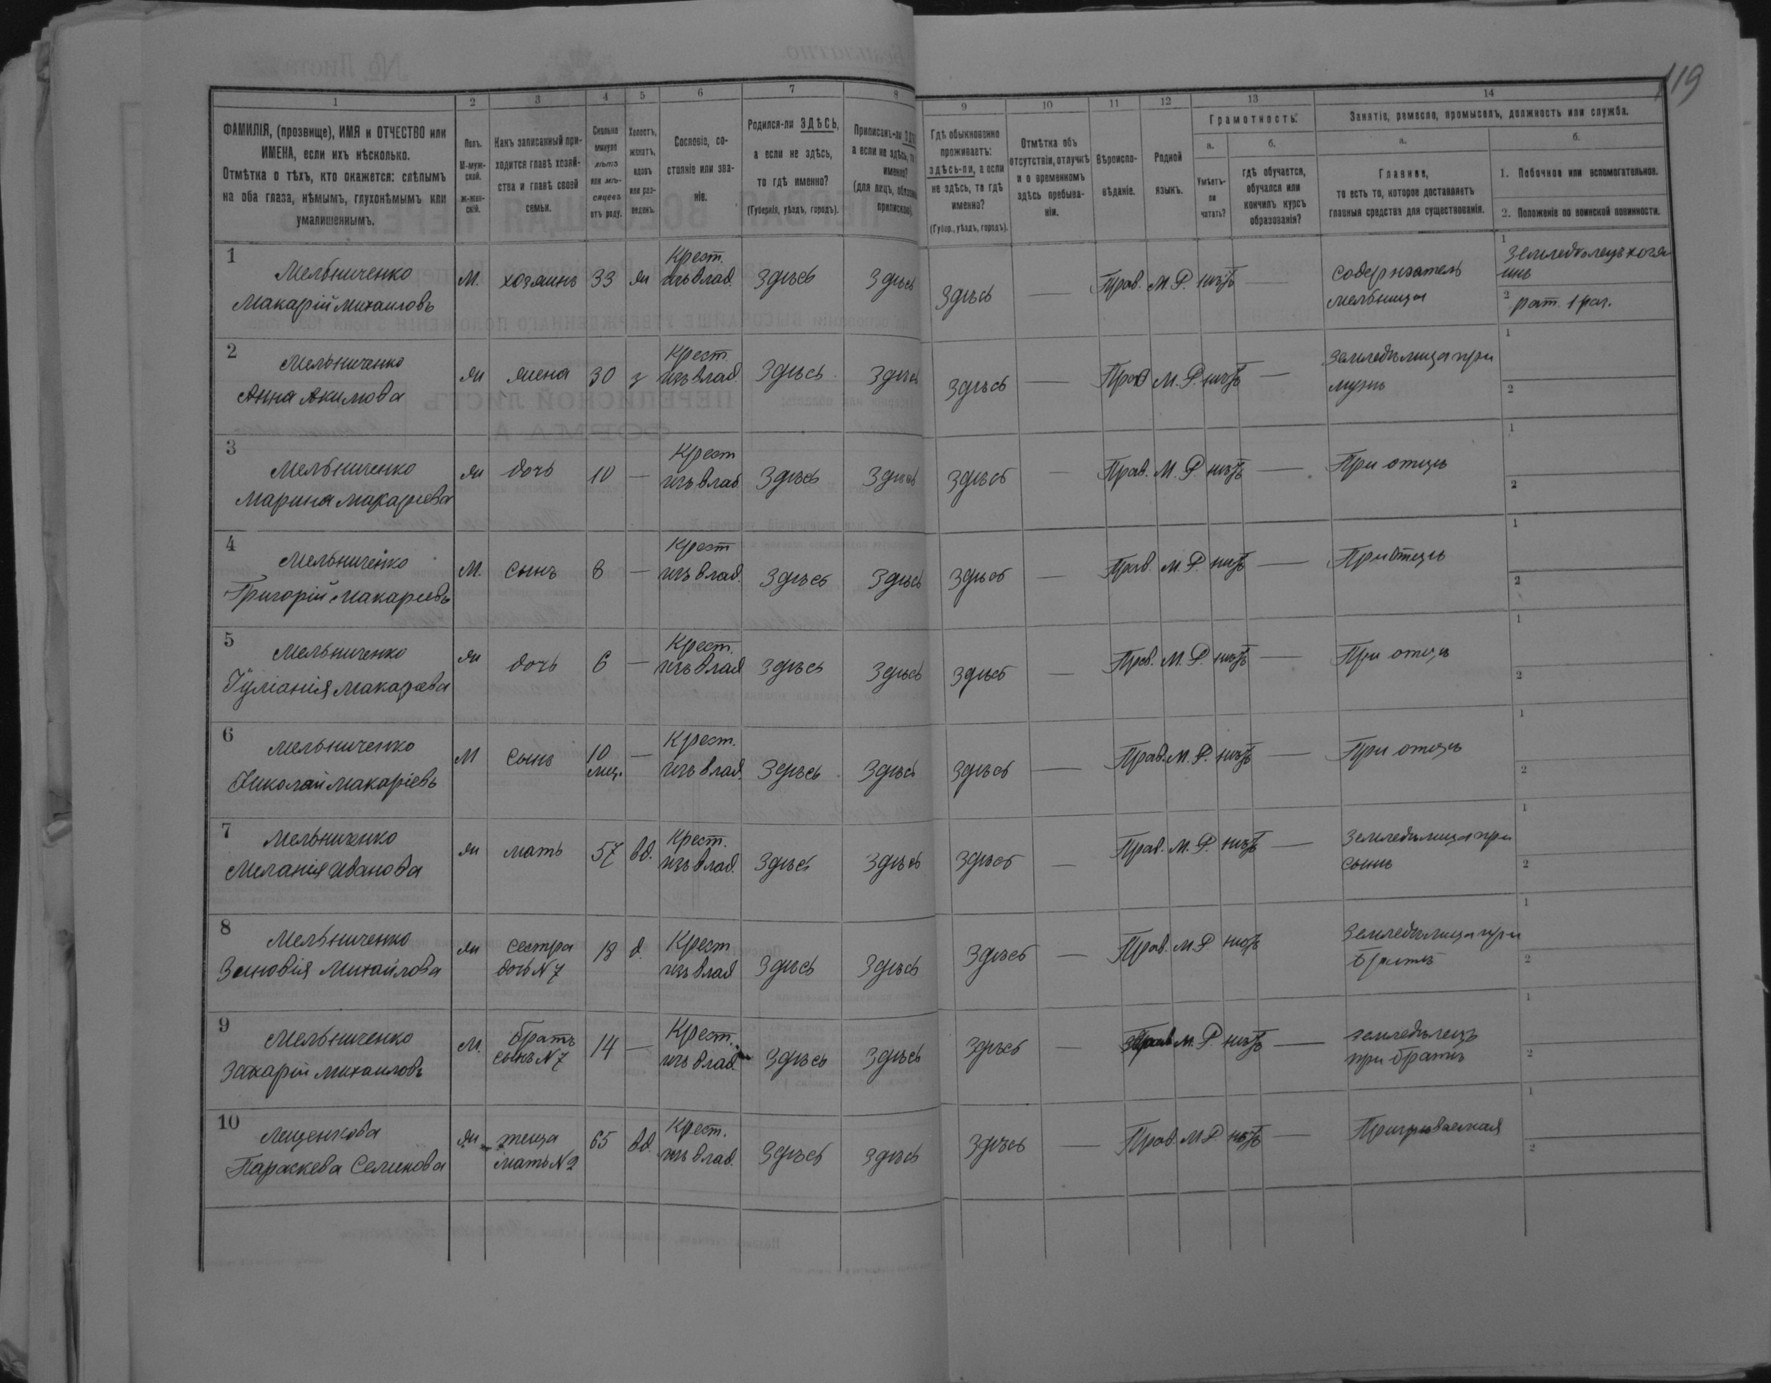 119
1 2 3 4 5 6 7 8 9 10 11 12 13 14
ФАМИЛІЯ, (прозвище), ИМЯ и ОТЧЕСТВО или
ИМЕНА, если ихъ нѣсколько.
Отмѣтка о тѣхъ, кто окажется: слѣпымъ
на оба глаза, нѣмымъ, глухонѣмымъ или
умалишеннымъ.
Полъ.
М-муж-
ской.
Ж-жен-
скій.
Какъ записанный при-
ходится главѣ хозяй-
ства и главѣ своей
семьи.
Сколько
минуло
лѣтъ
или мѣ-
сяцевъ
отъ роду.
Холостъ,
женатъ,
вдовъ
или раз-
веденъ.
Сословіе, со-
стояніе или зва-
ніе.
Родился-ли ЗДѢСЬ,
а если не здѣсь,
то гдѣ именно?
(Губернія, уѣздъ, городъ).
Приписанъ-ли
а если не здѣсь,
именно?
(для лицъ,
Гдѣ обыкновенно
проживаетъ:
здѣсь-ли, а если
не здѣсь, то гдѣ
именно?
(Губер., уѣздъ, городъ).
Отмѣтка объ
отсутствіи, отлучкѣ
и о временномъ
здѣсь пребыва-
ніи.
Вѣроиспо-
вѣданіе.
Родной
языкъ.
Грамотность.
а.
Умѣетъ-
ли
читать?
б.
гдѣ обучается,
обучался или
кончилъ курсъ
образованія?
Занятіе, ремесло, промыселъ, должность или служба.
а.
Главное,
то есть то, которое доставляетъ
главныя средства для существованія.
б.
1. Побочное или вспомогательное.
2. Положеніе по воинской повинности.
1 Мельниченко
Макарій Михаиловъ
М. хозяинъ 33 жн Крест.
изъ влад. Здѣсь Здѣсь Здѣсь — Прав. М. Р. нѣтъ — содержатель
мельницы
1 Земледѣлецъ хозя
инъ
2 рат. 1 раз.
2 Мельниченко
Анна Акимова
жн жена 30 з Крест
изъ влад Здѣсь Здѣсь Здѣсь — Прав М. Р. нѣтъ — Земледѣлица при
мужѣ
1
2
3 Мельниченко
Марина Макаріева
жн дочь 10 — Крест
изъ влад. Здѣсь Здѣсь Здѣсь — Прав. М. Р. нѣтъ — При отцѣ
1
2
4 Мельниченко
Григорій Макаріевъ
М. сынъ 8 — Крест
изъ влад. Здѣсь Здѣсь Здѣсь — Прав М. Р. нѣтъ — При отцѣ
1
2
5 Мельниченко
Іуліанія Макаріева
жн дочь 6 — Крест.
изъ влад Здѣсь Здѣсь Здѣсь — Прав. М. Р. нѣтъ — При отцѣ
1
2
6 Мельниченко
Николай Макаріевъ
М сынъ 10
мѣц. — Крест.
изъ влад Здѣсь Здѣсь Здѣсь — Прав. М. Р. нѣтъ — При отцѣ
1
2
7 Мельниченко
Меланія Иванова
жн мать 57 вд. Крест.
изъ влад. Здѣсь Здѣсь Здѣсь — Прав. М. Р. нѣтъ — Земледѣлица при
сынѣ
1
2
8 Мельниченко
Зиновія Михайлова
жн сестра
дочь N 7 18 д. Крест
изъ влад Здѣсь Здѣсь Здѣсь — Прав. М. Р нѣтъ Земледѣлица при
братѣ
1
2
9 Мельниченко
Захарій Михаиловъ
М. братъ
сынъ N 7 14 — Крест.
изъ влад. Здѣсь Здѣсь Здѣсь — Прав М. Р нѣтъ — земледѣлецъ
при братѣ
1
2
10 Лещенкова
Параскева Семенова
жн теща
мать N 2 65 вд. Крест.
изъ влад. Здѣсь Здѣсь Здѣсь — Прав М Р нѣтъ —
1
2